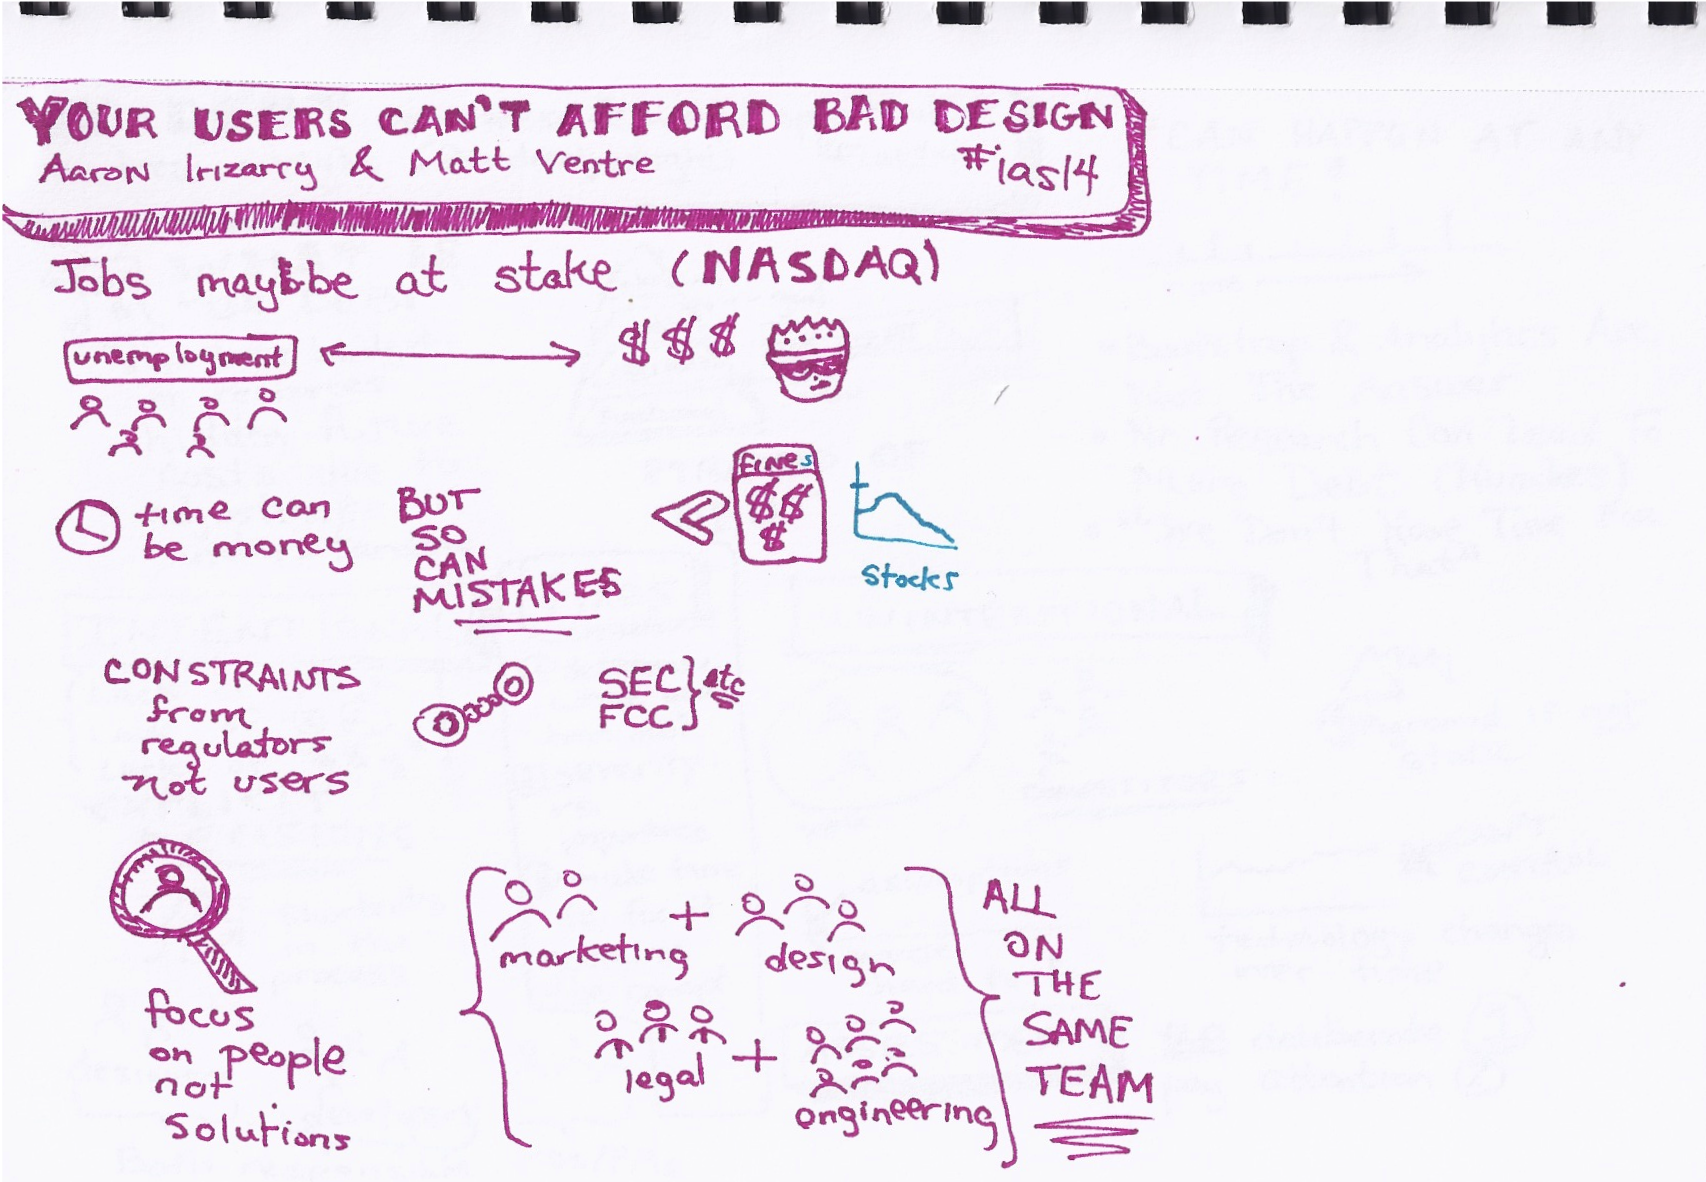 YOUR USERS CAN'T AFFORD BAD DESIGN
Aaron Irizarry & Matt Ventre
#ias14
Jobs may be at stake (NASDAQ)
unemployment
$ $ $
time can
be money
BUT
SO
CAN
MISTAKES
fines
$ $
$
Stocks
CONSTRAINTS
from
regulators
not users
SEC
FCC
etc
focus
on people
not
solutions
marketing
+
design
legal
+
engineering
ALL
ON
THE
SAME
TEAM